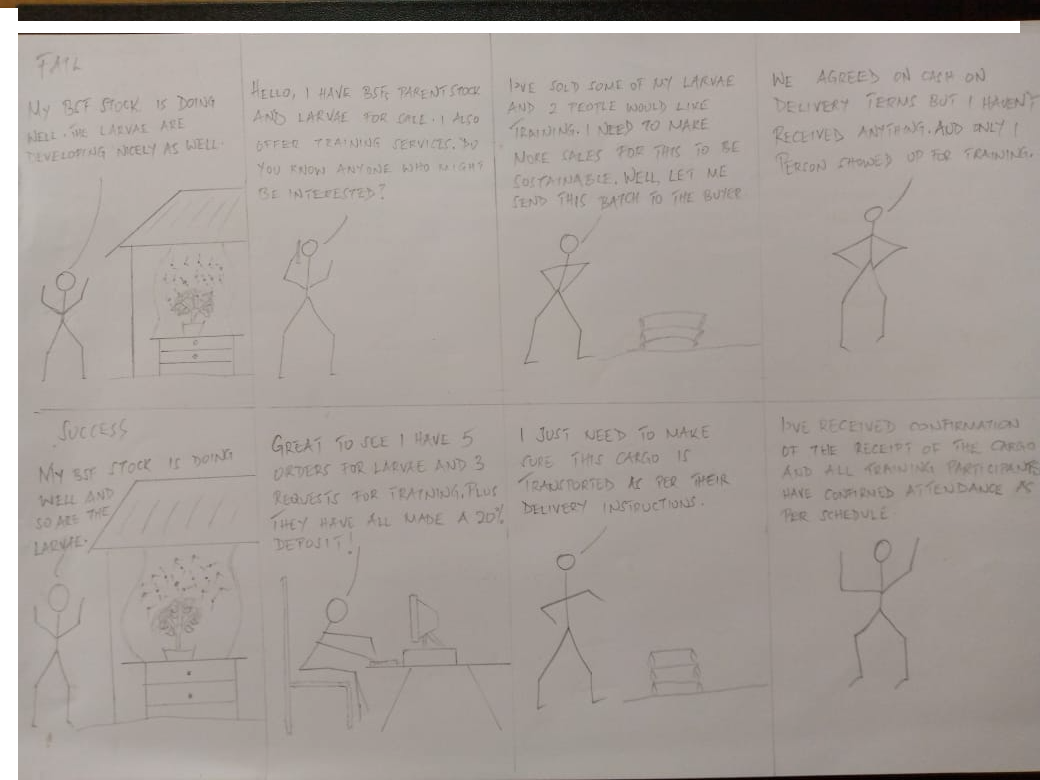 FAIL
MY BSF STOCK IS DOING
WELL. THE LARVAE ARE
DEVELOPING NICELY AS WELL.
HELLO, I HAVE BSF PARENT STOCK
AND LARVAE FOR SALE. I ALSO
OFFER TRAINING SERVICES. DO
YOU KNOW ANYONE WHO MIGHT
BE INTERESTED?
I'VE SOLD SOME OF MY LARVAE
AND 2 PEOPLE WOULD LIKE
TRAINING. I NEED TO MAKE
MORE SALES FOR THIS TO BE
SUSTAINABLE. WELL, LET ME
SEND THIS BATCH TO THE BUYER
WE AGREED ON CASH ON
DELIVERY TERMS BUT I HAVEN'T
RECEIVED ANYTHING. AND ONLY 1
PERSON SHOWED UP FOR TRAINING.
SUCCESS
MY BSF STOCK IS DOING
WELL AND
SO ARE THE
LARVAE.
GREAT TO SEE I HAVE 5
ORDERS FOR LARVAE AND 3
REQUESTS FOR TRAINING, PLUS
THEY HAVE ALL MADE A 20%
DEPOSIT!
I JUST NEED TO MAKE
SURE THIS CARGO IS
TRANSPORTED AS PER THEIR
DELIVERY INSTRUCTIONS.
I'VE RECEIVED CONFIRMATION
OF THE RECEIPT OF THE CARGO
AND ALL TRAINING PARTICIPANTS
HAVE CONFIRMED ATTENDANCE AS
PER SCHEDULE